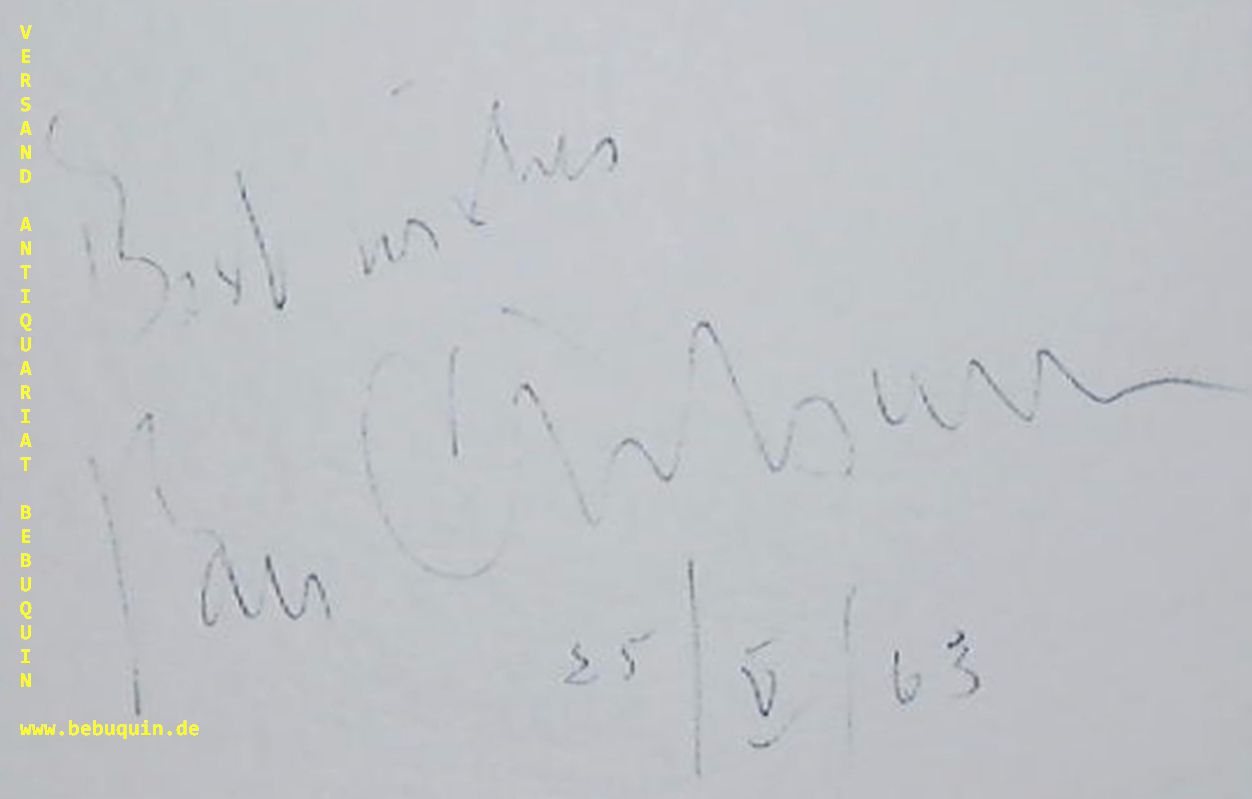 VERSAND ANTIQUARIAT BEBUQUIN
www.bebuquin.de
Best wishes
25/V/63